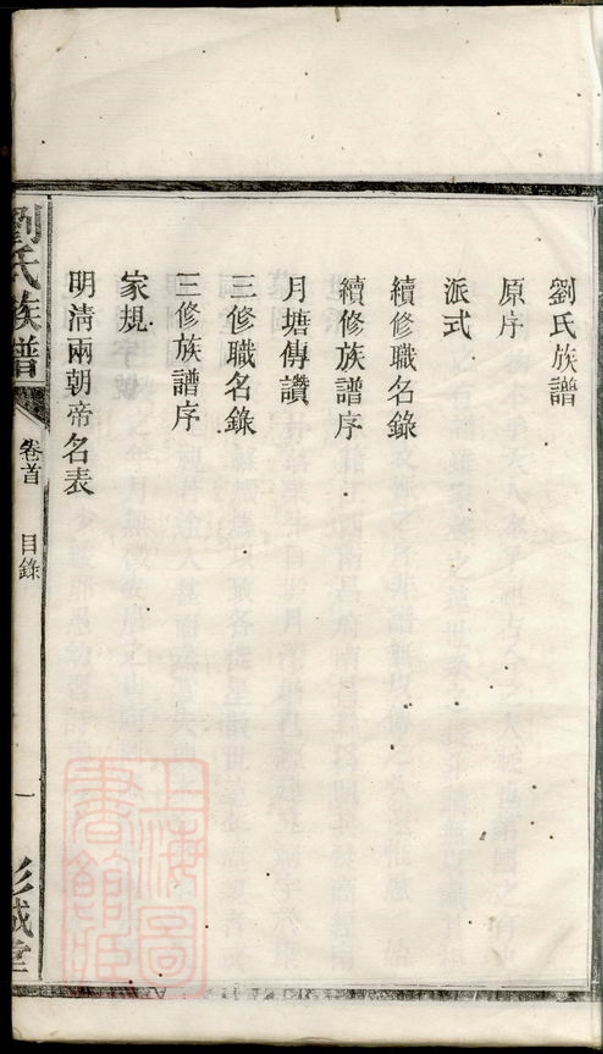 劉氏族譜
原序
派式
續修職名錄
續修族譜序
月塘傳讚
三修職名錄
三修族譜序
家規
明清兩朝帝名表
劉氏族譜
卷首
目錄
一
彭城堂
上海圖書館藏